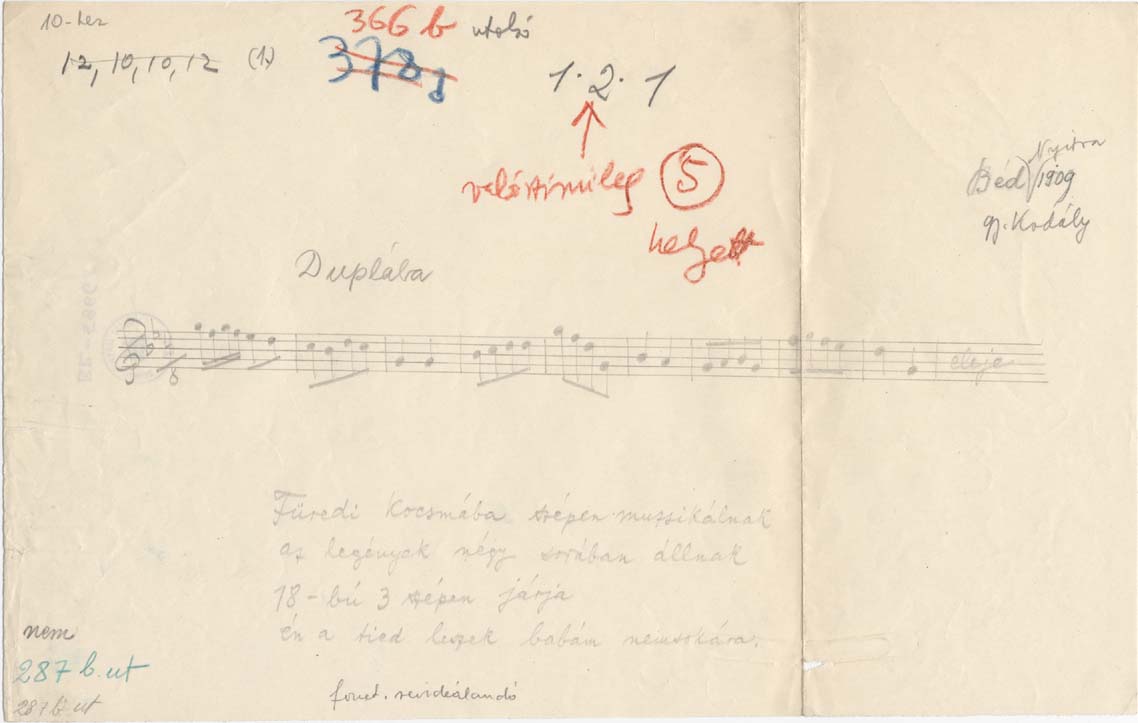 10-hez
366 b utolsó
12, 10, 10, 12 (1.)
378
1. 2. 1
valószínűleg 5
helyett
Nyitra
Béd 1909
gy. Kodály
Duplába
eleje
Füredi kocsmába szépen muzsikálnak
az legények négy sorában állnak
18-bú 3 szépen járja
Én a tied leszek babám nemsokára.
nem
287 b. ut
287 b. ut
fonet. revideálandó